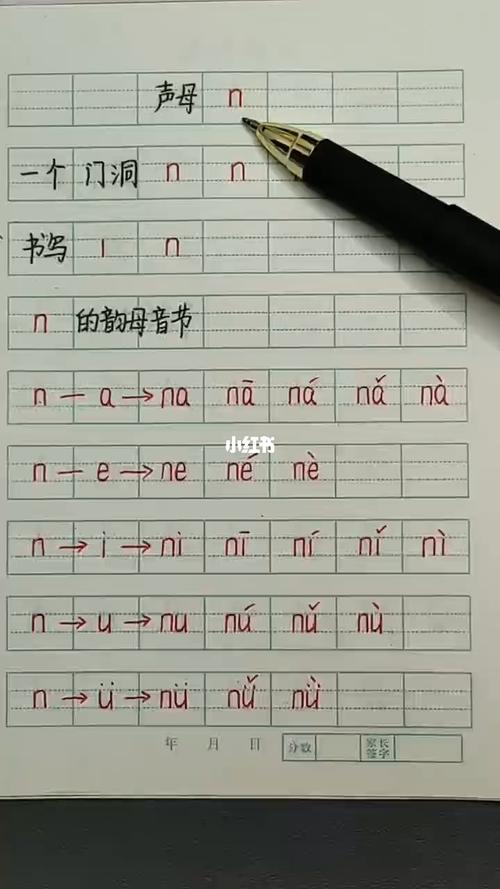 声母 n
一个 门洞 n n
书写 ı n
n 的韵母音节
n — a → na nā ná nǎ nà
n — e → ne né nè
小红书
n → i → ni nī ní nǐ nì
n → u → nu nú nǔ nù
n → ü → nü nǚ nǜ
年 月 日 分数 家长签字